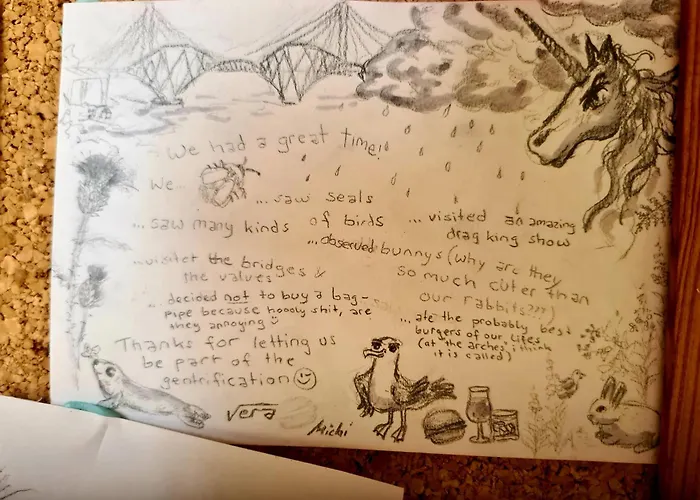 We had a great time!
We
... saw seals
...saw many kinds of birds
... visited an amazing
drag king show
...observed bunnys (why are they
so much cuter than
our rabbits???)
...visitet the bridges &
the valves
...decided not to buy a bag-
pipe because hoooly shit, are
they annoying
...ate the probably best
burgers of our lifes
(at the arches, i think
it is called)
Thanks for letting us
be part of the
gentrification
vera
Michi